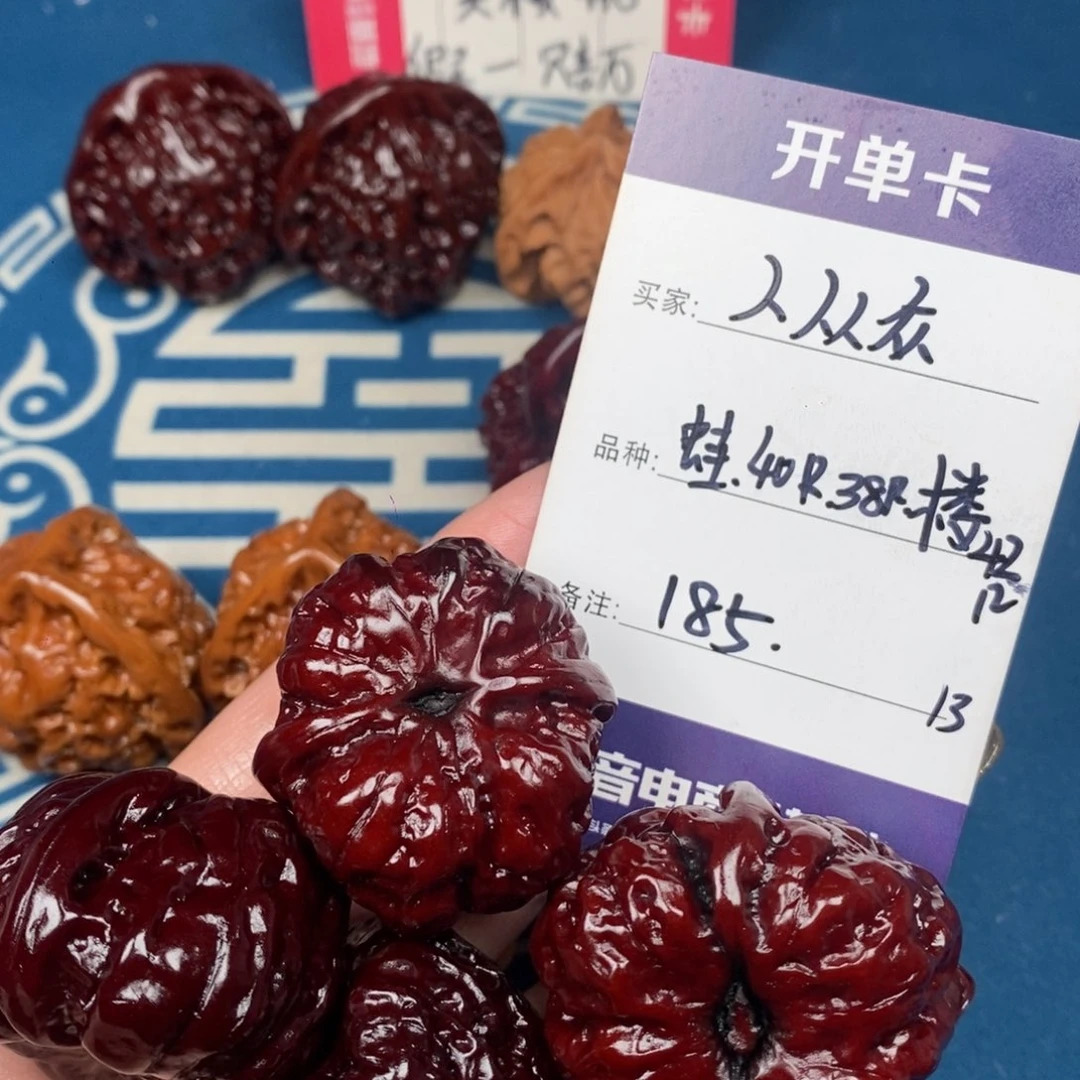 开单卡
买家: 人从众
品种: 蛙.40R.38R.楼
42
12
备注: 185.
13
音电商